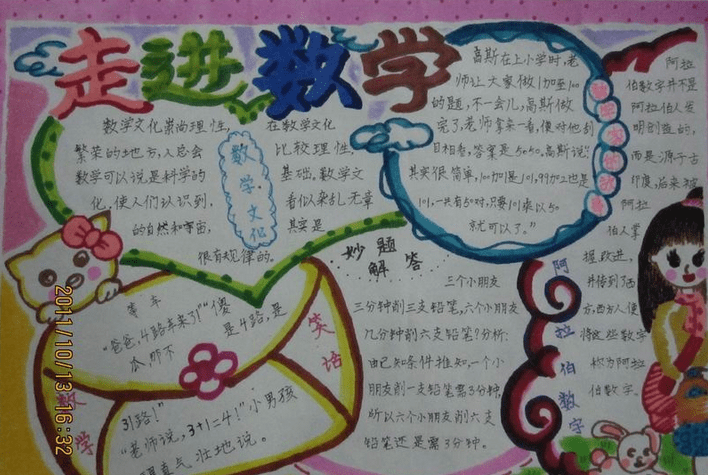 走进数学
数学文化崇尚理性,
繁荣的地方,人总会
数学可以说是科学的
化,使人们认识到,
的自然和宇宙,
很有规律的。
在数学文化
比较理性,
基础。数学文
看似杂乱无章
其实是
数学文化
高斯在上小学时,老
师让大家做1加至100
的题,不一会儿,高斯做
完了,老师拿来一看,便对他刮
目相看,答案是5050。高斯说:“
其实很简单,100加1是101,99加2也是
101,一共有50对,只要101乘以50
就可以了。”
阿拉
伯数字并不是
阿拉伯人发
明创造的,
而是源于古
印度,后来被
阿拉
伯人掌
握、改进,
并传到了西
方,西方人便
将这些数字
称为阿拉
伯数字
阿拉伯数字
妙题
解答
三个小朋友
三分钟削三支铅笔,六个小朋友
几分钟削六支铅笔?分析:
由已知条件推知,一个小
朋友削一支铅笔需3分钟,
所以六个小朋友削六支
铅笔还是需3分钟。
数学
笑话
等车
“爸爸,4路车来了!”“傻
瓜,那不
是4路,是
31路!”
“老师说,3+1=4!”小男孩
理直气壮地说。
2011/10/13 16:32